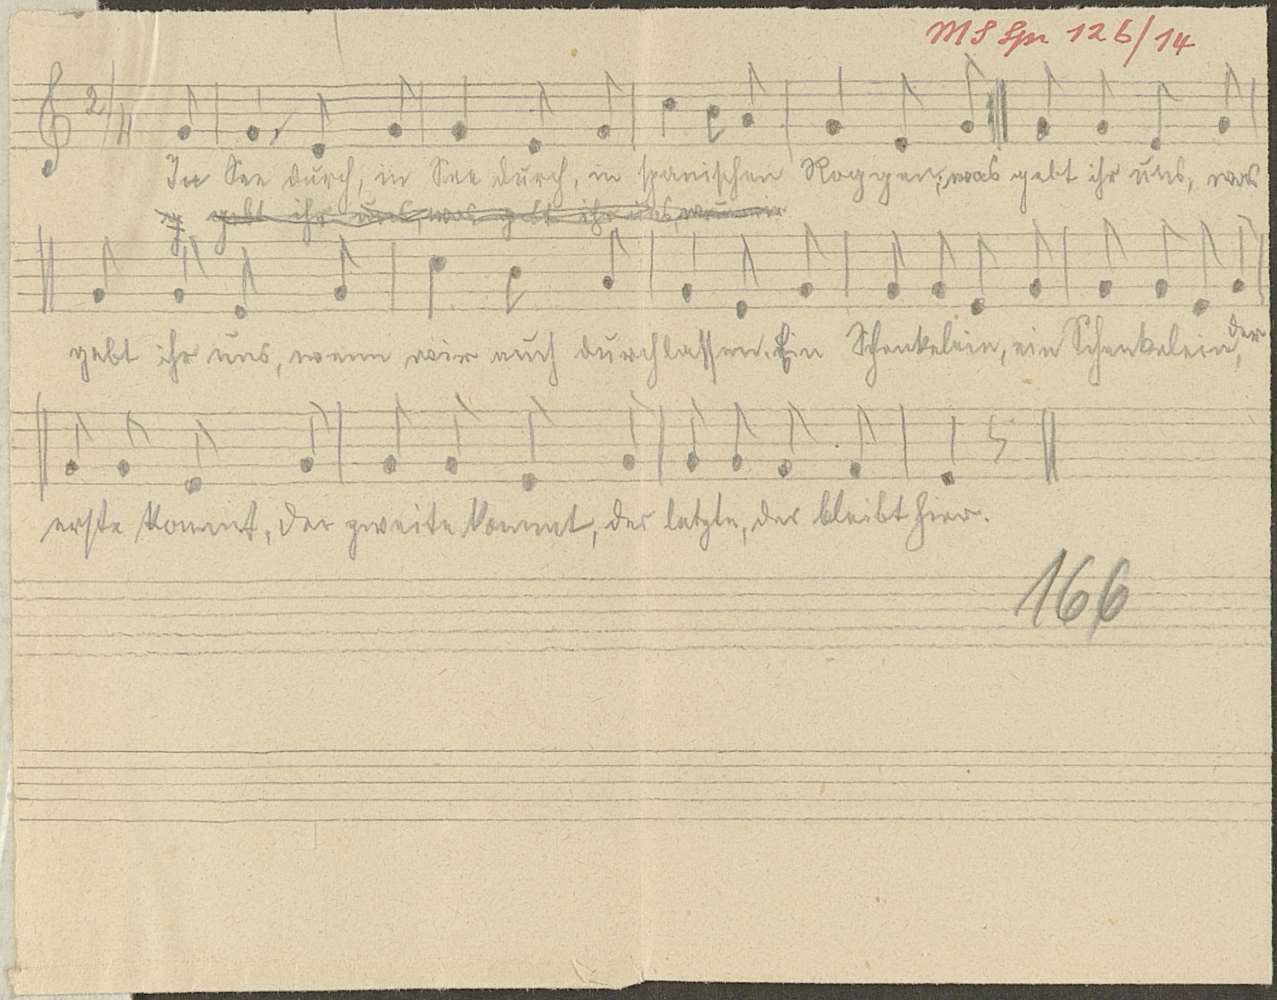 MS Spr 126/14
2/4
In See durch, in See durch, in spanischen Roggen; was gebt ihr uns, was
gebt ihr uns, was gebt ihr uns, wenn wir
gebt ihr uns, wenn wir euch durchlassen. Ein Schenkelein, ein Schenkelein, der
erste kommt, der zweite kommt, der letzte, der bleibt hier.
166